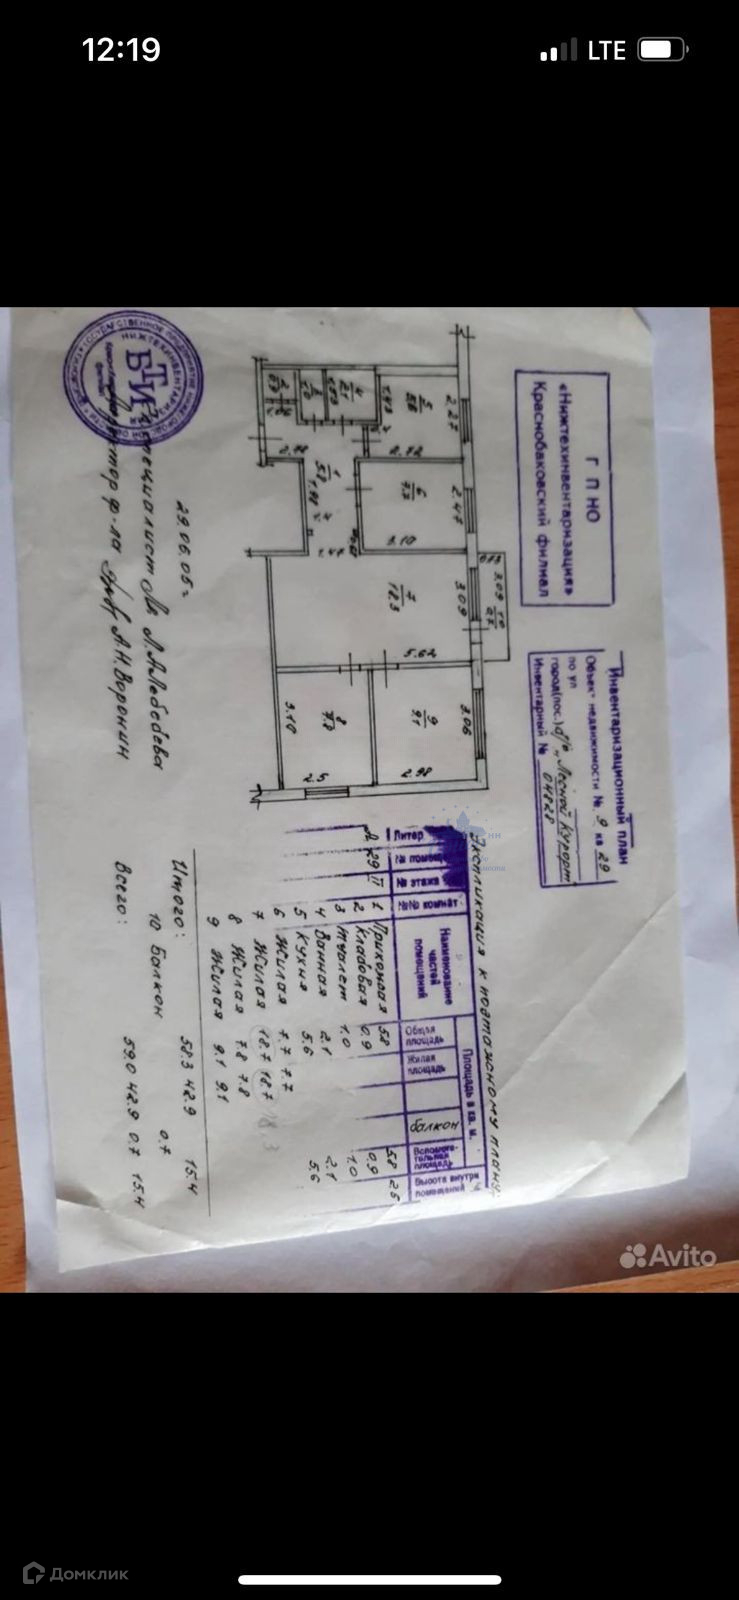 12:19
LTE
Г П НО
«Нижтехинвентаризация»
Краснобаковский филиал
Инвентаризационный план
Объект недвижимости № 9 кв 29
по ул
город(пос.) д/о „Лесной Курорт"
Инвентарный № 04828
2.27
5
5.6
2.72
4
2.1
3
1.0
2
0.9
2.72
1
5.8
1.98
1.47
2.47
6
7.7
3.10
0.73
3.09
3.09
7
18.3
5.62
3.06
9
9.1
2.98
8
7.8
3.10
2.5
Экспликация к поэтажному плану
Литер
№ помещ
№ этажа
№№ комнат
Наименование частей помещений
Площадь в кв. м.
Общая площадь
Жилая площадь
балкон
Вспомогательная площадь
Высота внутри помещений
А 29 II 1 Прихожая 5.8 5.8 2.5
2 Кладовая 0.9 0.9
3 туалет 1.0 1.0
4 Ванная 2.1 2.1
5 Кухня 5.6 5.6
6 Жилая 7.7 7.7
7 Жилая 18.7 18.7 18.3
8 Жилая 7.8 7.8
9 Жилая 9.1 9.1
Итого: 58.3 42.9 15.4
10 Балкон 0.7
Всего: 59.0 42.9 0.7 15.4
29.06.05г
специалист Л.А.Лебедева
Директор ф-ла А.Н.Воронин
БТИ
Avito
Домклик